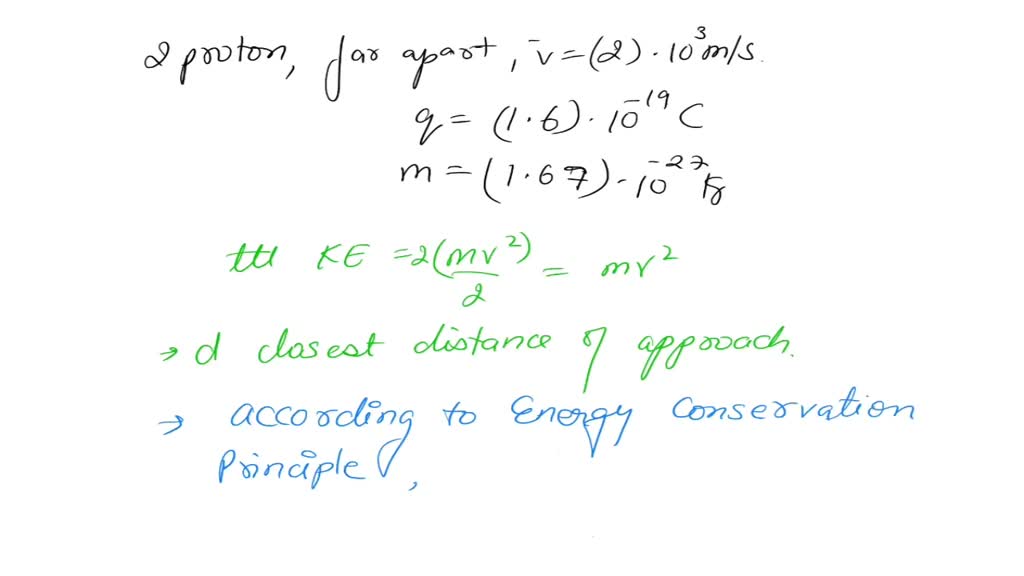 2 proton, far apart, v̄ = (2) · 10³ m/s.
q = (1.6) · 10⁻¹⁹ C
m = (1.67) · 10⁻²⁷ kg
KE = 2(mv²/2) = mv²
→ d closest distance of approach.
→ according to Energy Conservation
Principle,